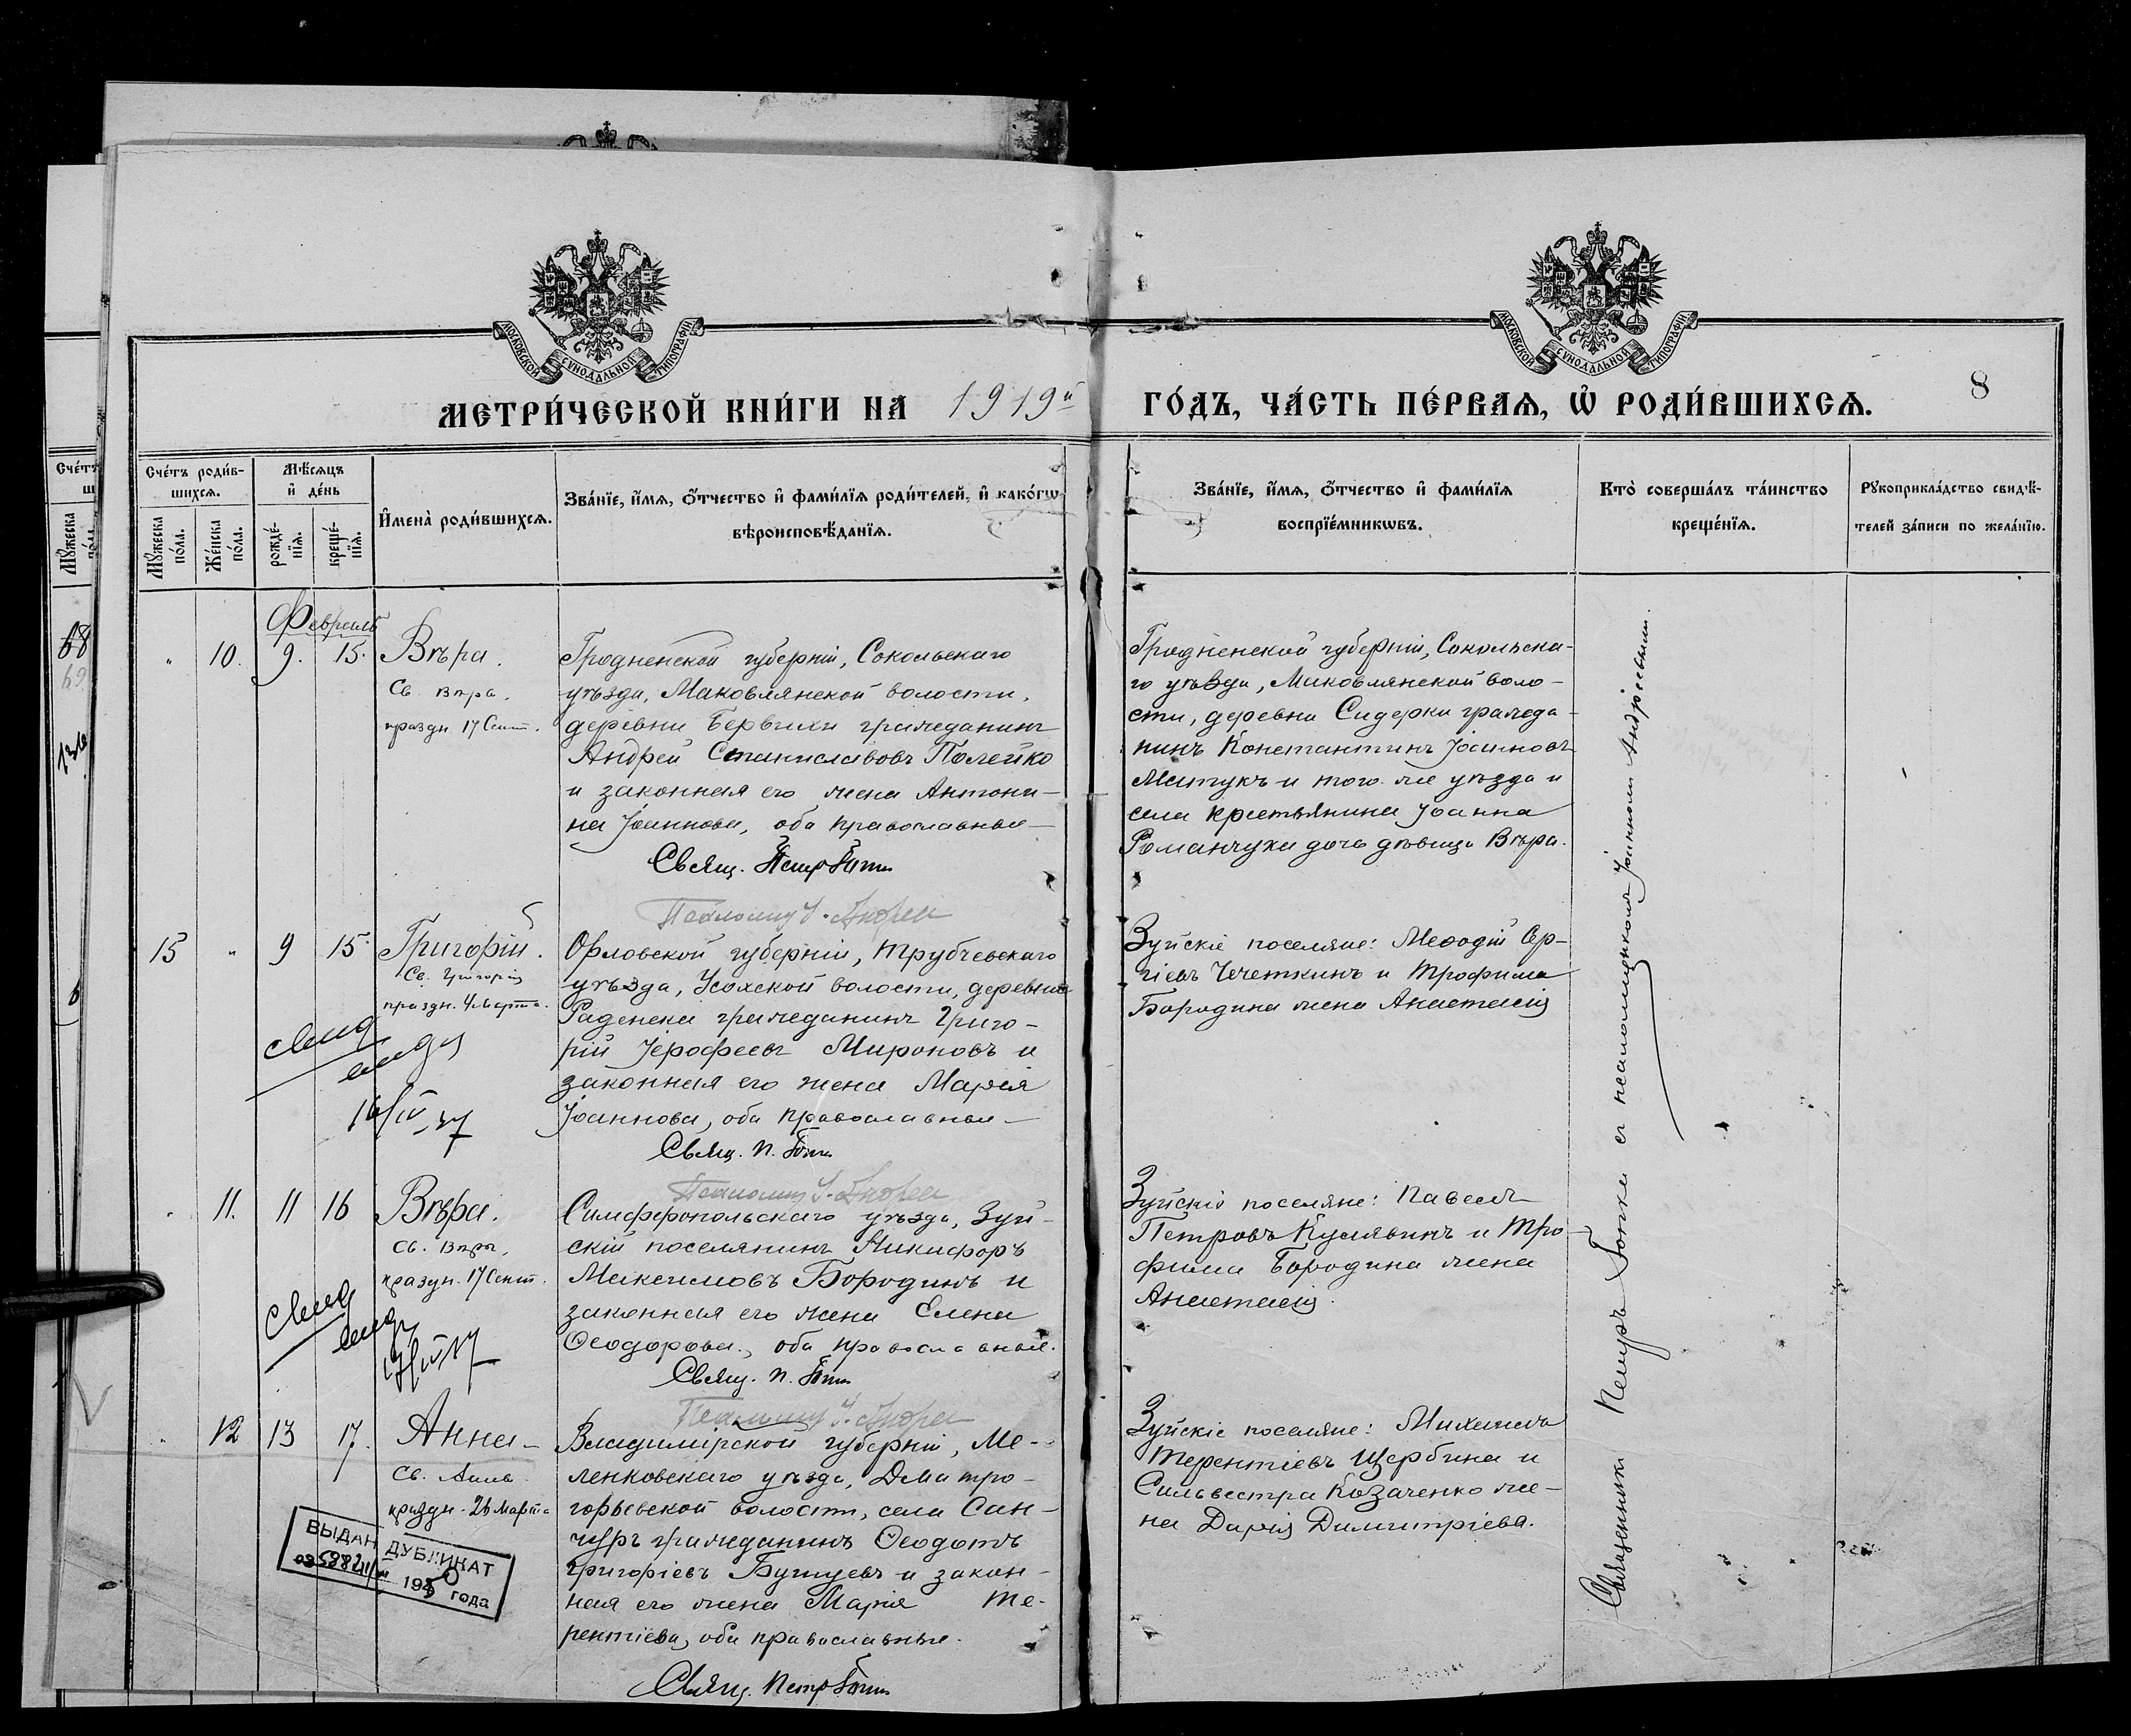 МОСКОВСКОЙ СѴНОДАЛЬНОЙ ТИПОГРАФІИ
МОСКОВСКОЙ СѴНОДАЛЬНОЙ ТИПОГРАФІИ
МЕТРИ́ЧЕСКОЙ КНИ́ГИ НА 1919й ГО́ДЪ, ЧА́СТЬ ПЕ́РВАѦ, Ѽ РОДИ́ВШИХСѦ.
8
Сче́тъ роди́в-
шихсѧ.
Мꙋжеска по́ла.
Же́нска по́ла.
Мѣ́сѧцъ
и҆ де́нь
рожде́-
нїѧ.
креще́-
нїѧ.
И҆мена̀ роди́вшихсѧ.
Зва́нїе, и҆́мѧ, ѻ҆́тчество и҆ фами́лїѧ роди́телей, и҆ како́гѡ
вѣроисповѣ́данїѧ.
Зва́нїе, и҆́мѧ, ѻ҆́тчество и҆ фами́лїѧ
воспрїе́мникѡвъ.
Кто̀ соверша́лъ та́инство
креще́нїѧ.
Рꙋкоприкла́дство свидѣ́-
телей за́писи по жела́нїю.
Февраль
" 10. 9. 15. Вѣра.
Св. Вѣра.
праздн. 17 Сент.
Гродненской губерніи, Сокольскаго
уѣзда, Маковлянской волости,
деревни гражданинъ
Андрей Станиславовъ Полейко
и законная его жена Антони-
на Іоаннова, оба православные
Свящ. Петръ
Гродненской губерніи, Сокольска-
го уѣзда, Маковлянской воло-
сти, деревни Сидерки гражда-
нинъ Константинъ Іоанновъ
Матукъ и того же уѣзда и
села крестьянина Іоанна
Романчука дочь дѣвица Вѣра.
Псаломщ. І. Андреев
15 " 9 15. Григорій.
Св. Григорія
праздн. Марта.
Орловской губерніи, Трубчевскаго
уѣзда, Усохской волости, деревни
Раденска гражданинъ Григо-
рій Іерофеевъ Мироновъ и
законная его жена Марія
Іоаннова, оба православные
Свящ. П.
16/IV 37
Зуйскіе поселяне: Меѳодій Сер-
гіевъ Чечеткинъ и Трофима
Бородина жена Анастасія
Псаломщ. І. Андреев
11. 11 16 Вѣра.
Св. Вѣра,
праздн. 17 Сент.
Симферопольскаго уѣзда, Зуй-
скій поселянинъ Никифоръ
Максимовъ Бородинъ и
законная его жена Елена
Ѳеодорова, оба православные.
Свящ. П.
Зуйскіе поселяне: Павелъ
Петровъ Кулявинъ и Тро-
фима Бородина жена
Анастасія.
Псаломщ. І. Андреев
12 13 17. Анна
Св. Анны
праздн. 26 Марта
Владимірской губерніи, Ме-
ленковскаго уѣзда, Дмитро-
горьевской волости, села Сан-
чуръ гражданинъ Ѳеодотъ
Григорьевъ и закон-
ная его жена Марія Те-
рентіева, оба православные.
Свящ. Петръ
Зуйскіе поселяне: Михаилъ
Терентіевъ Щербина и
Сильвестра Козаченко же-
на Дарія Димитріева.
ВЫДАН ДУБЛИКАТ
1950 года
Священникъ Петръ съ псаломщикомъ Іоанномъ Андреевымъ.